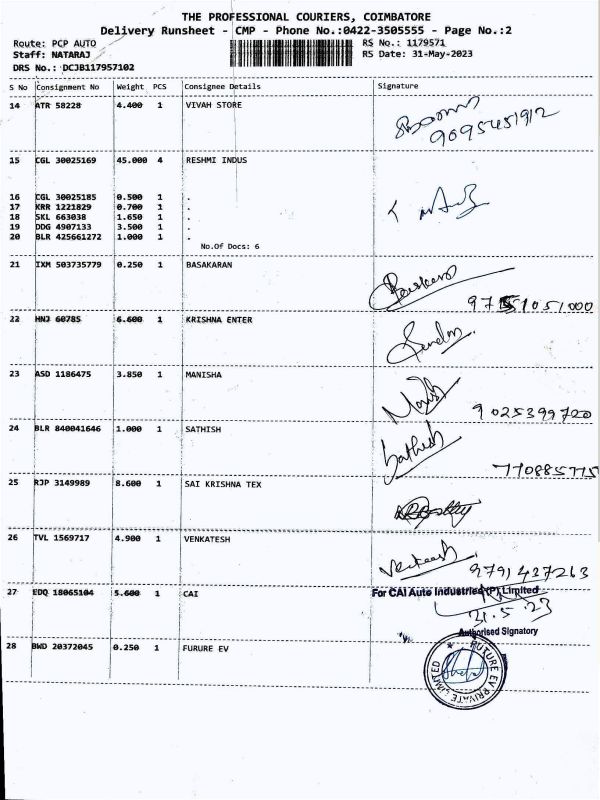 THE PROFESSIONAL COURIERS, COIMBATORE
Delivery Runsheet - CMP - Phone No.:0422-3505555 - Page No.:2
Route: PCP AUTO RS No.: 1179571
Staff: NATARAJ RS Date: 31-May-2023
DRS No.: DCJB117957102
S No Consignment No Weight PCS Consignee Details Signature
14 ATR 58228 4.400 1 VIVAH STORE
9095451912
15 CGL 30025169 45.000 4 RESHMI INDUS
16 CGL 30025185 0.500 1 .
17 KRR 1221829 0.700 1 .
18 SKL 663038 1.650 1 .
19 DDG 4907133 3.500 1 .
20 BLR 425661272 1.000 1 .
No.Of Docs: 6
21 IXM 503735779 0.250 1 BASAKARAN
22 HNJ 6078S 6.600 1 KRISHNA ENTER
23 ASD 1186475 3.850 1 MANISHA
9025399720
24 BLR 840041646 1.000 1 SATHISH
Sathish
770885775
25 RJP 3149989 8.600 1 SAI KRISHNA TEX
26 TVL 1569717 4.900 1 VENKATESH
Venkatesh
9791427263
27 EDQ 18065104 5.600 1 CAI For CAI Auto Industries (P) Limited
21.5.23
Authorised Signatory
28 BWD 20372045 0.250 1 FURURE EV
FUTURE EV PRIVATE LIMITED